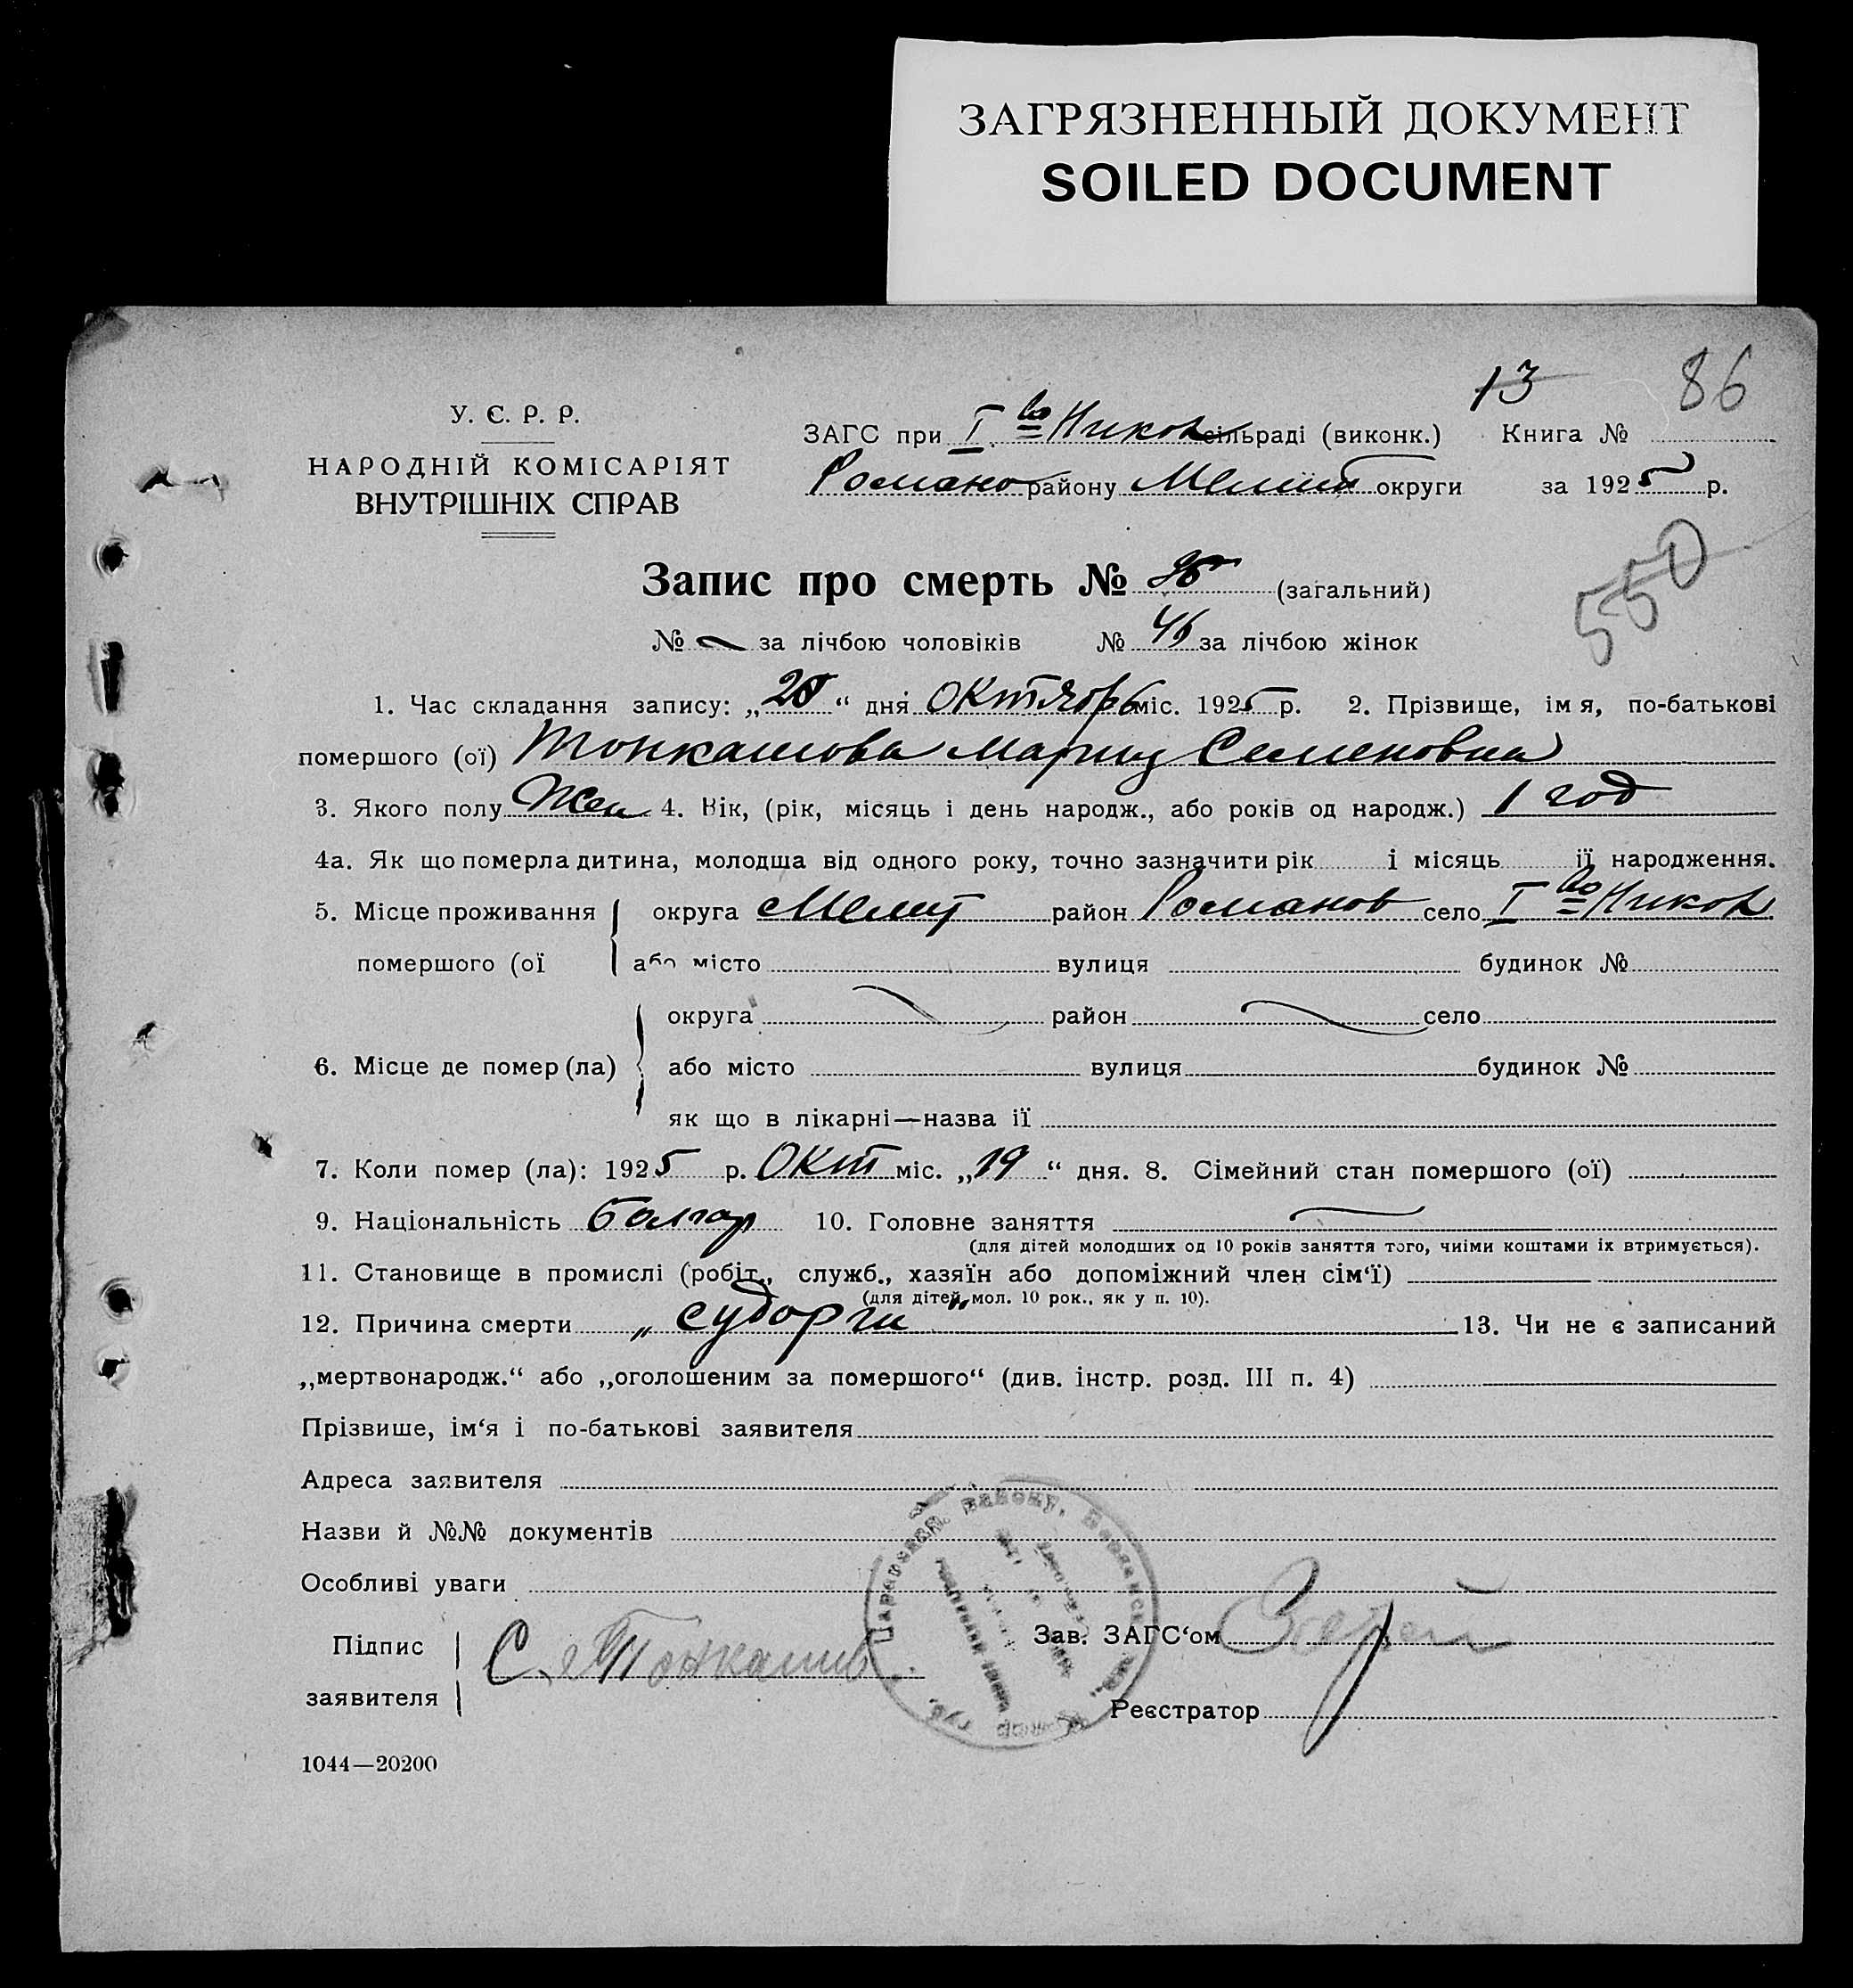 ЗАГРЯЗНЕННЫЙ ДОКУМЕНТ
SOILED DOCUMENT
13 86
У. С. Р. Р.
НАРОДНІЙ КОМІСАРІЯТ
ВНУТРІШНІХ СПРАВ
ЗАГС при I во Никол сільраді (виконк.) Книга №
Романо району Мелит округи за 1925 р.
550
Запис про смерть № (загальний)
№ за лічбою чоловіків № 46 за лічбою жінок
1. Час складання запису: „20“ дня Октябрь міс. 1925 р. 2. Прізвище, імя, по-батькові
помершого (ої) Тонкашова Мария Семеновна
3. Якого полу Жен 4. Вік, (рік, місяць і день народж., або років од народж.) 1 год
4а. Як що померла дитина, молодша від одного року, точно зазначити рік і місяць її народження.
5. Місце проживання округа Мелит район Романов село I во Никол
помершого (ої або місто вулиця будинок №
округа район село
6. Місце де помер (ла) або місто вулиця будинок №
як що в лікарні—назва її
7. Коли помер (ла): 1925 р. Окт міс. „19“ дня. 8. Сімейний стан помершого (ої)
9. Національність болгар 10. Головне заняття
(для дітей молодших од 10 років заняття того, чиїми коштами їх втримується).
11. Становище в промислі (робіт., служб., хазяїн або допоміжний член сім‘ї)
(для дітей мол. 10 рок., як у п. 10).
12. Причина смерти „судорги“ 13. Чи не є записаний
„мертвонародж.“ або „оголошеним за помершого“ (див. інстр. розд. III п. 4)
Прізвише, ім‘я і по-батькові заявителя
Адреса заявителя
Назви й №№ документів
Особливі уваги
Підпис
заявителя С. Тонкашов
Зав. ЗАГС‘ом
Реєстратор
1044—20200